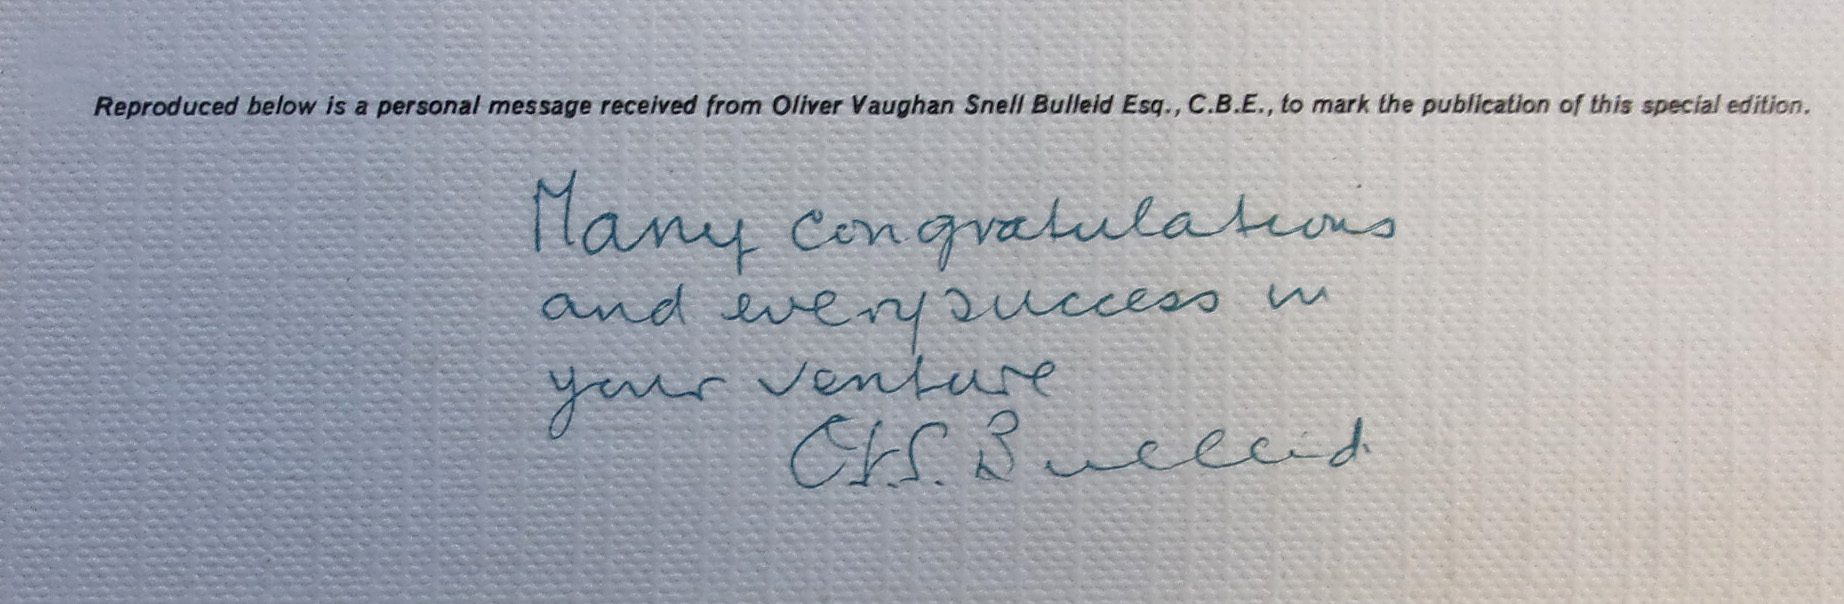 Reproduced below is a personal message received from Oliver Vaughan Snell Bulleid Esq., C.B.E., to mark the publication of this special edition.
Many congratulations
and every success in
your venture
O.V.S. Bulleid.